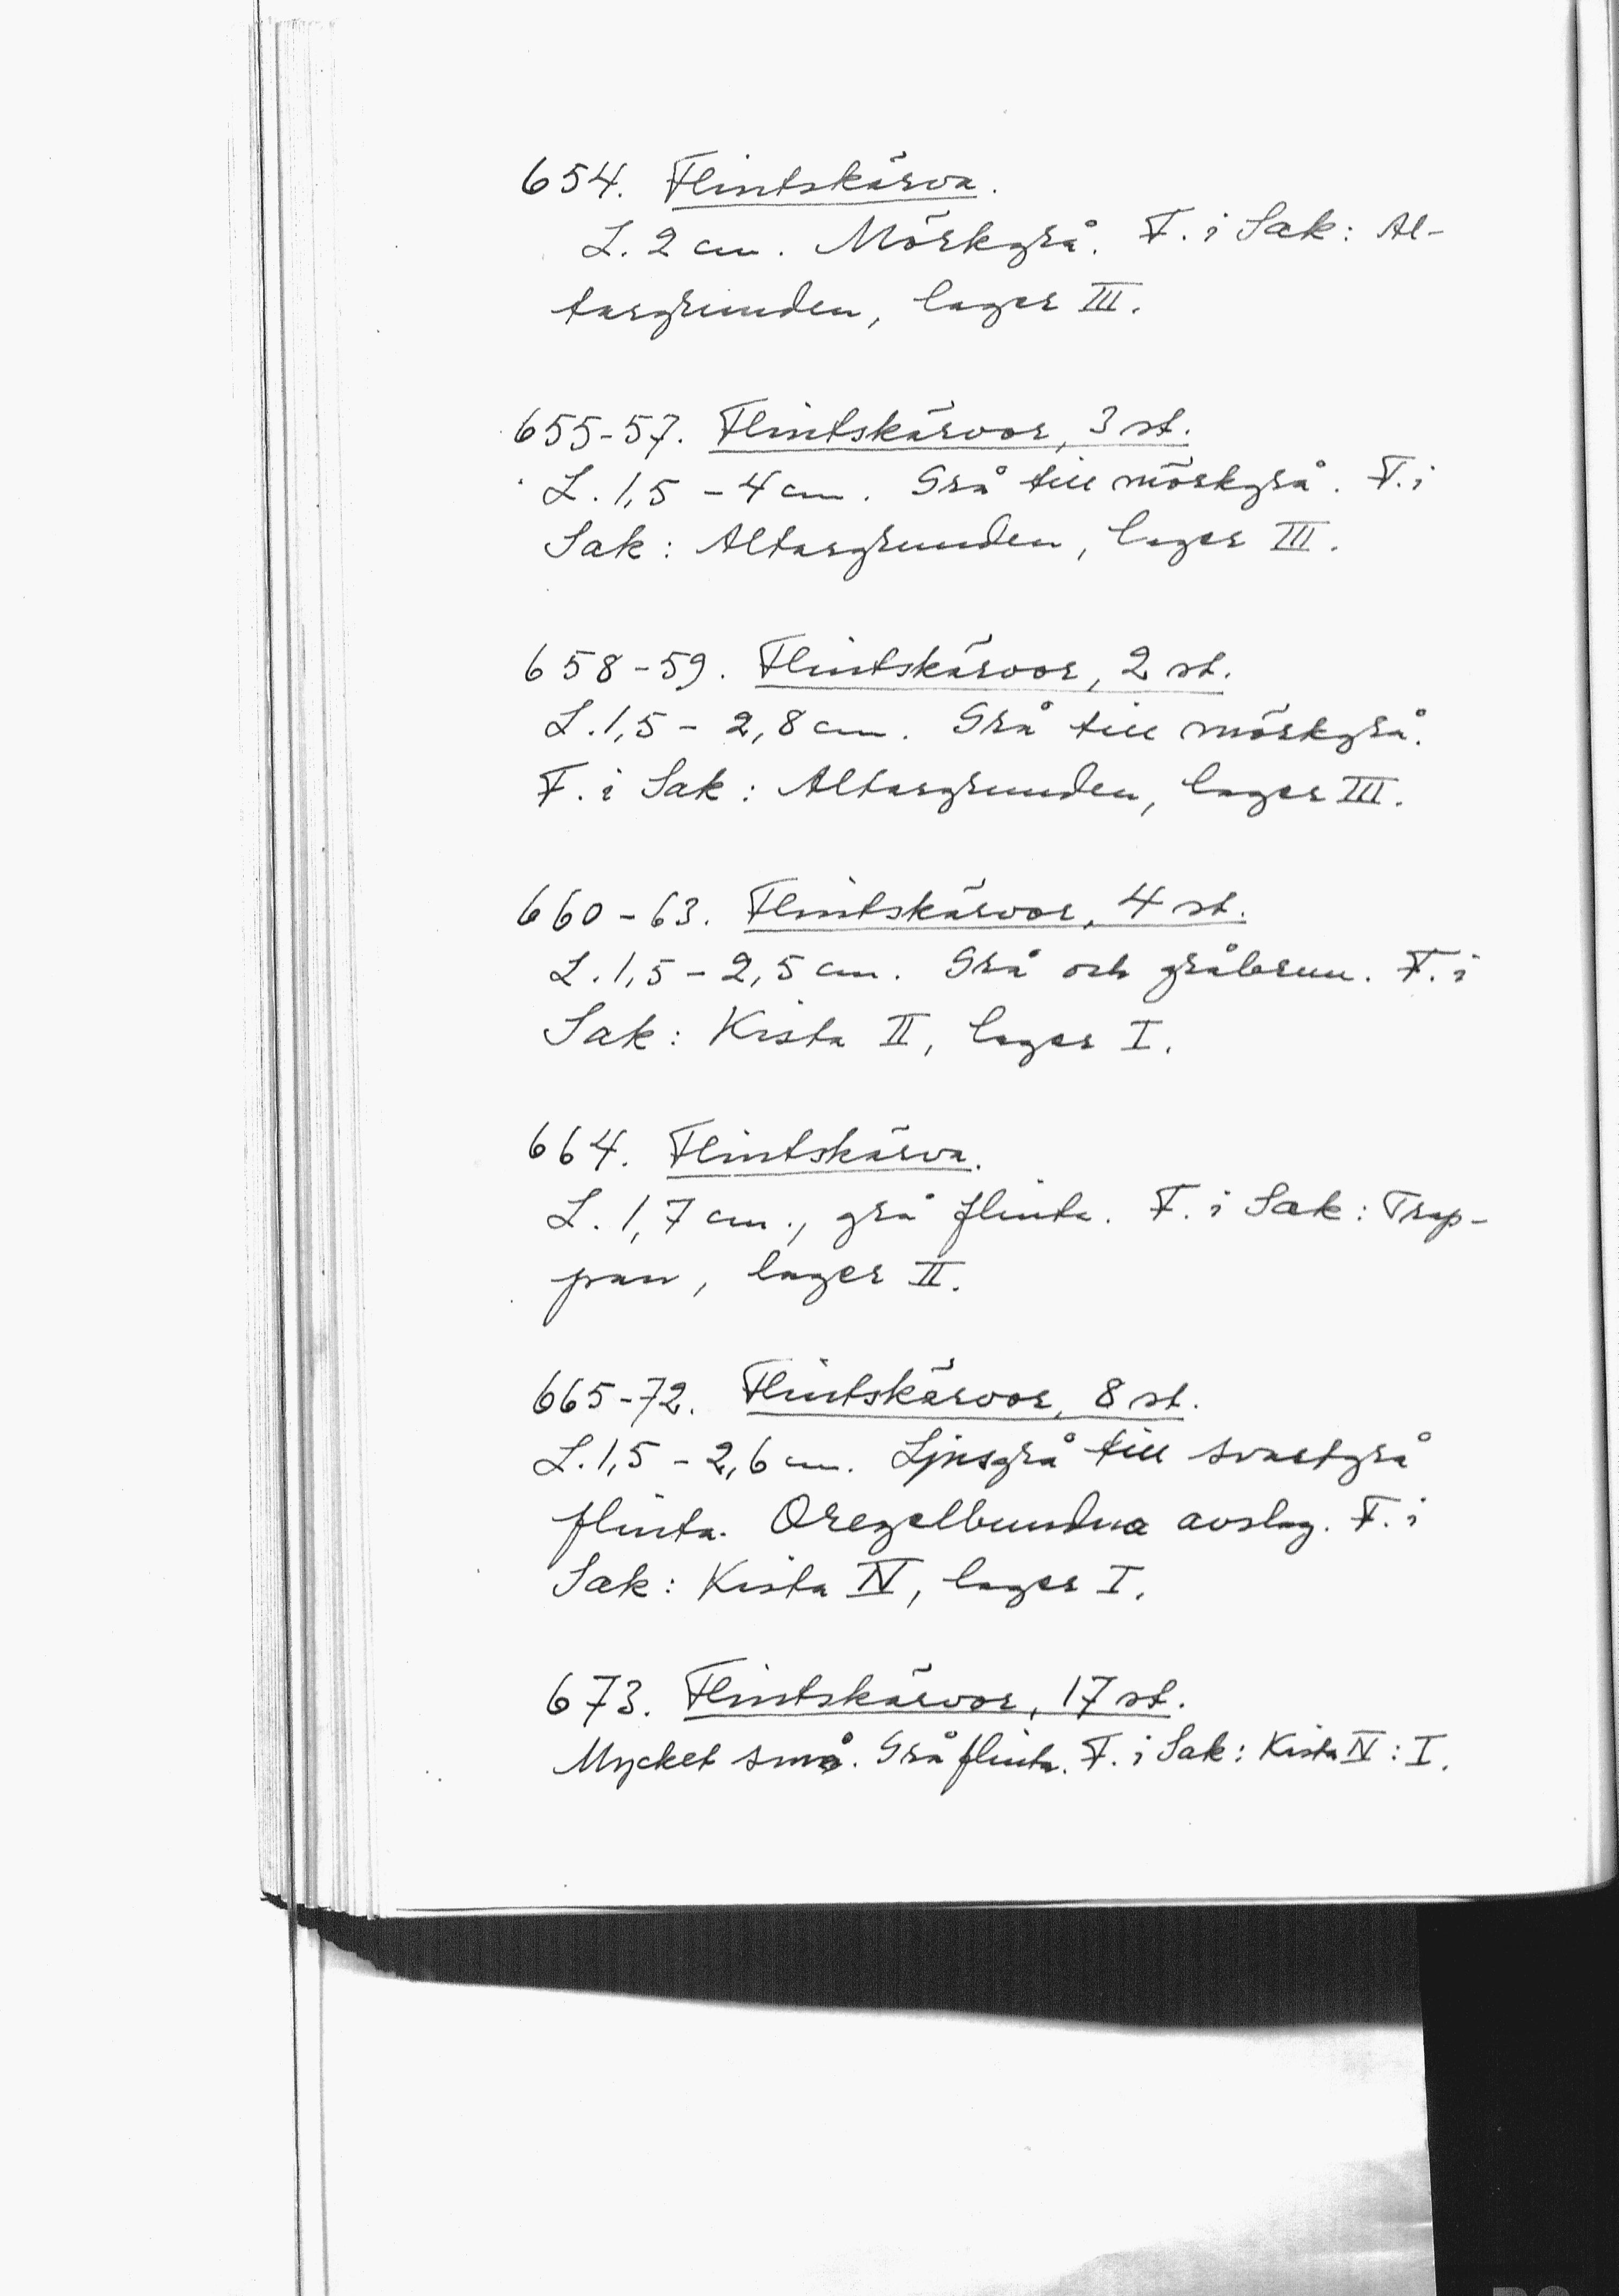 654. Flintskärva.
L. 2 cm. Mörkgrå. F. i Sak: Al-
targrunden, lager III.
655-57. Flintskärvor, 3 st.
L. 1,5 - 4 cm. Grå till mörkgrå. F. i
Sak: Altargrunden, lager III.
658-59. Flintskärvor, 2 st.
L. 1,5 - 2,8 cm. Grå till mörkgrå.
F. i Sak: Altargrunden, lager III.
660-63. Flintskärvor, 4 st.
L. 1,5 - 2,5 cm. Grå och gråbrun. F. i
Sak: Kista II, lager I.
664. Flintskärva.
L. 1,7 cm., grå flinta. F. i Sak: Trap-
pan, lager II.
665-72. Flintskärvor, 8 st.
L. 1,5 - 2,6 cm. Ljusgrå till svartgrå
flinta. Oregelbundna avslag. F. i
Sak: Kista IV, lager I.
673. Flintskärvor, 17 st.
Mycket små. Grå flinta. F. i Sak: Kista IV: I.